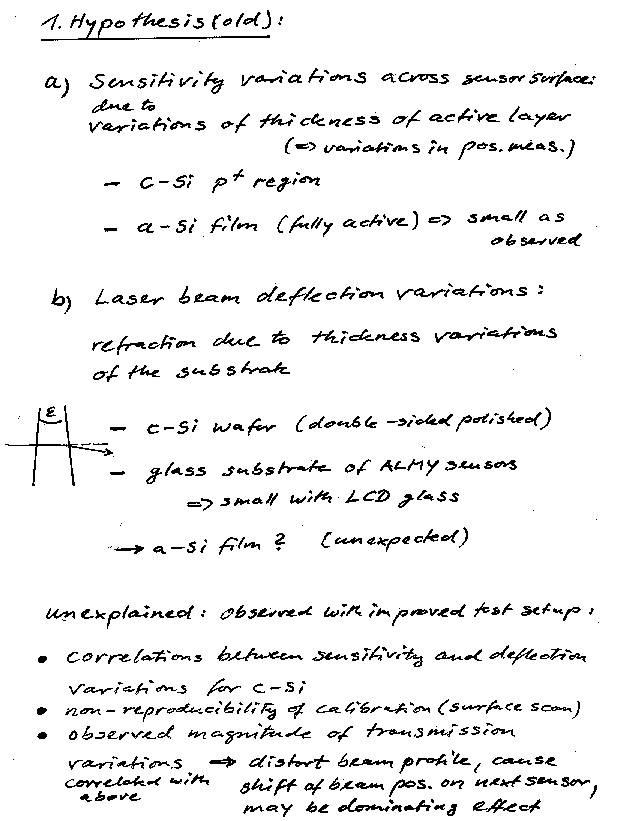 1. Hypothesis (old):
a) Sensitivity variations across sensor surface:
due to
variations of thickness of active layer
(=> variations in pos. meas.)
- c-Si p+ region
- a-Si film (fully active) => small as
observed
b) Laser beam deflection variations:
refraction due to thickness variations
of the substrate
ε
- c-Si wafer (double-sided polished)
- glass substrate of ALMY sensors
=> small with LCD glass
→ a-Si film? (unexpected)
unexplained: observed with improved test setup:
• correlations between sensitivity and deflection
variations for c-Si
• non-reproducibility of calibration (surface scan)
• observed magnitude of transmission
variations => distort beam profile, cause
correlated with shift of beam pos. on next sensor,
above may be dominating effect